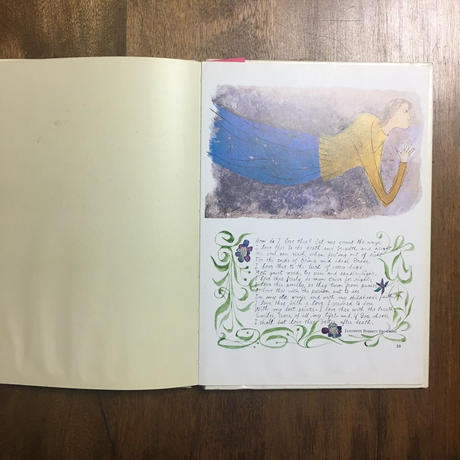 How do I love thee? Let me count the ways.
I love thee to the depth and breadth and height
My soul can reach, when feeling out of sight
For the ends of Being and ideal Grace.
I love thee to the level of every day's
Most quiet need, by sun and candlelight.
I love thee freely, as men strive for right;
I love thee purely, as they turn from praise.
I love thee with the passion put to use
In my old griefs, and with my childhood's faith.
I love thee with a love I seemed to lose
With my lost saints — I love thee with the breath,
Smiles, tears, of all my life! — and, if God choose,
I shall but love thee better after death.
Elizabeth Barrett Browning